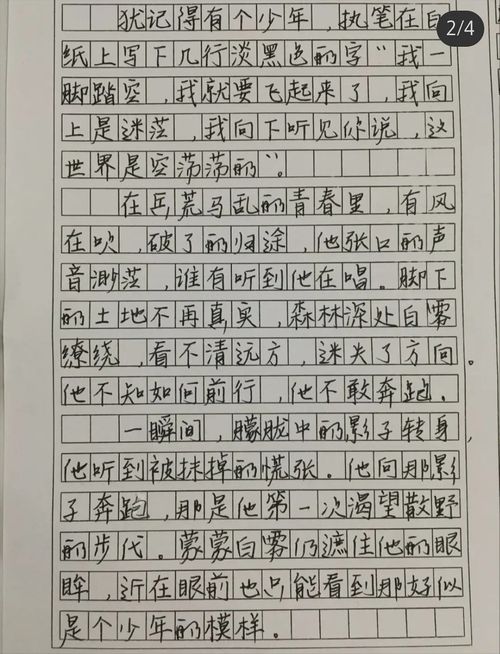 2/4
犹记得有个少年,执笔在白
纸上写下几行淡黑色的字"我一
脚踏空,我就要飞起来了,我向
上是迷茫,我向下听见你说,这
世界是空荡荡的"。
在兵荒马乱的青春里,有风
在吹,破了的归途,他张口的声
音渺茫,谁有听到他在唱。脚下
的土地不再真实,森林深处白雾
缭绕,看不清远方,迷失了方向。
他不知如何前行,他不敢奔跑。
一瞬间,朦胧中的影子转身,
他听到被抹掉的慌张。他向那影
子奔跑,那是他第一次渴望散野
的步伐。蒙蒙白雾仍遮住他的眼
眸,近在眼前也只能看到那好似
是个少年的模样。